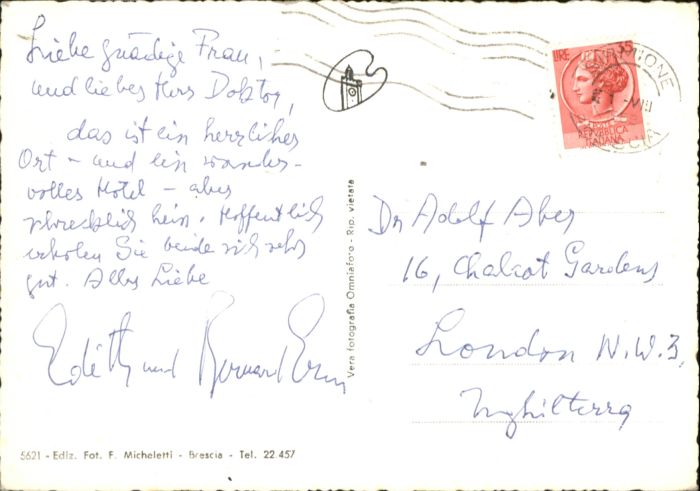 Liebe gnädige Frau,
und lieber Herr Doktor,
das ist ein herrlicher
Ort - und ein wunder-
volles Hotel - aber
schrecklich heiss. Hoffentlich
erholen Sie beide sich sehr
gut. Alles Liebe
Edith und Bernard
5621 - Ediz. Fot. F. Micheletti - Brescia - Tel. 22.457
Vera fotografia Omniafoto - Rip. vietata
LIRE 35
REPVBBLICA
ITALIANA
SIRMIONE
VIII
Dr Adolf Aber
16, Chalcot Gardens
London N.W.3,
Inghilterra